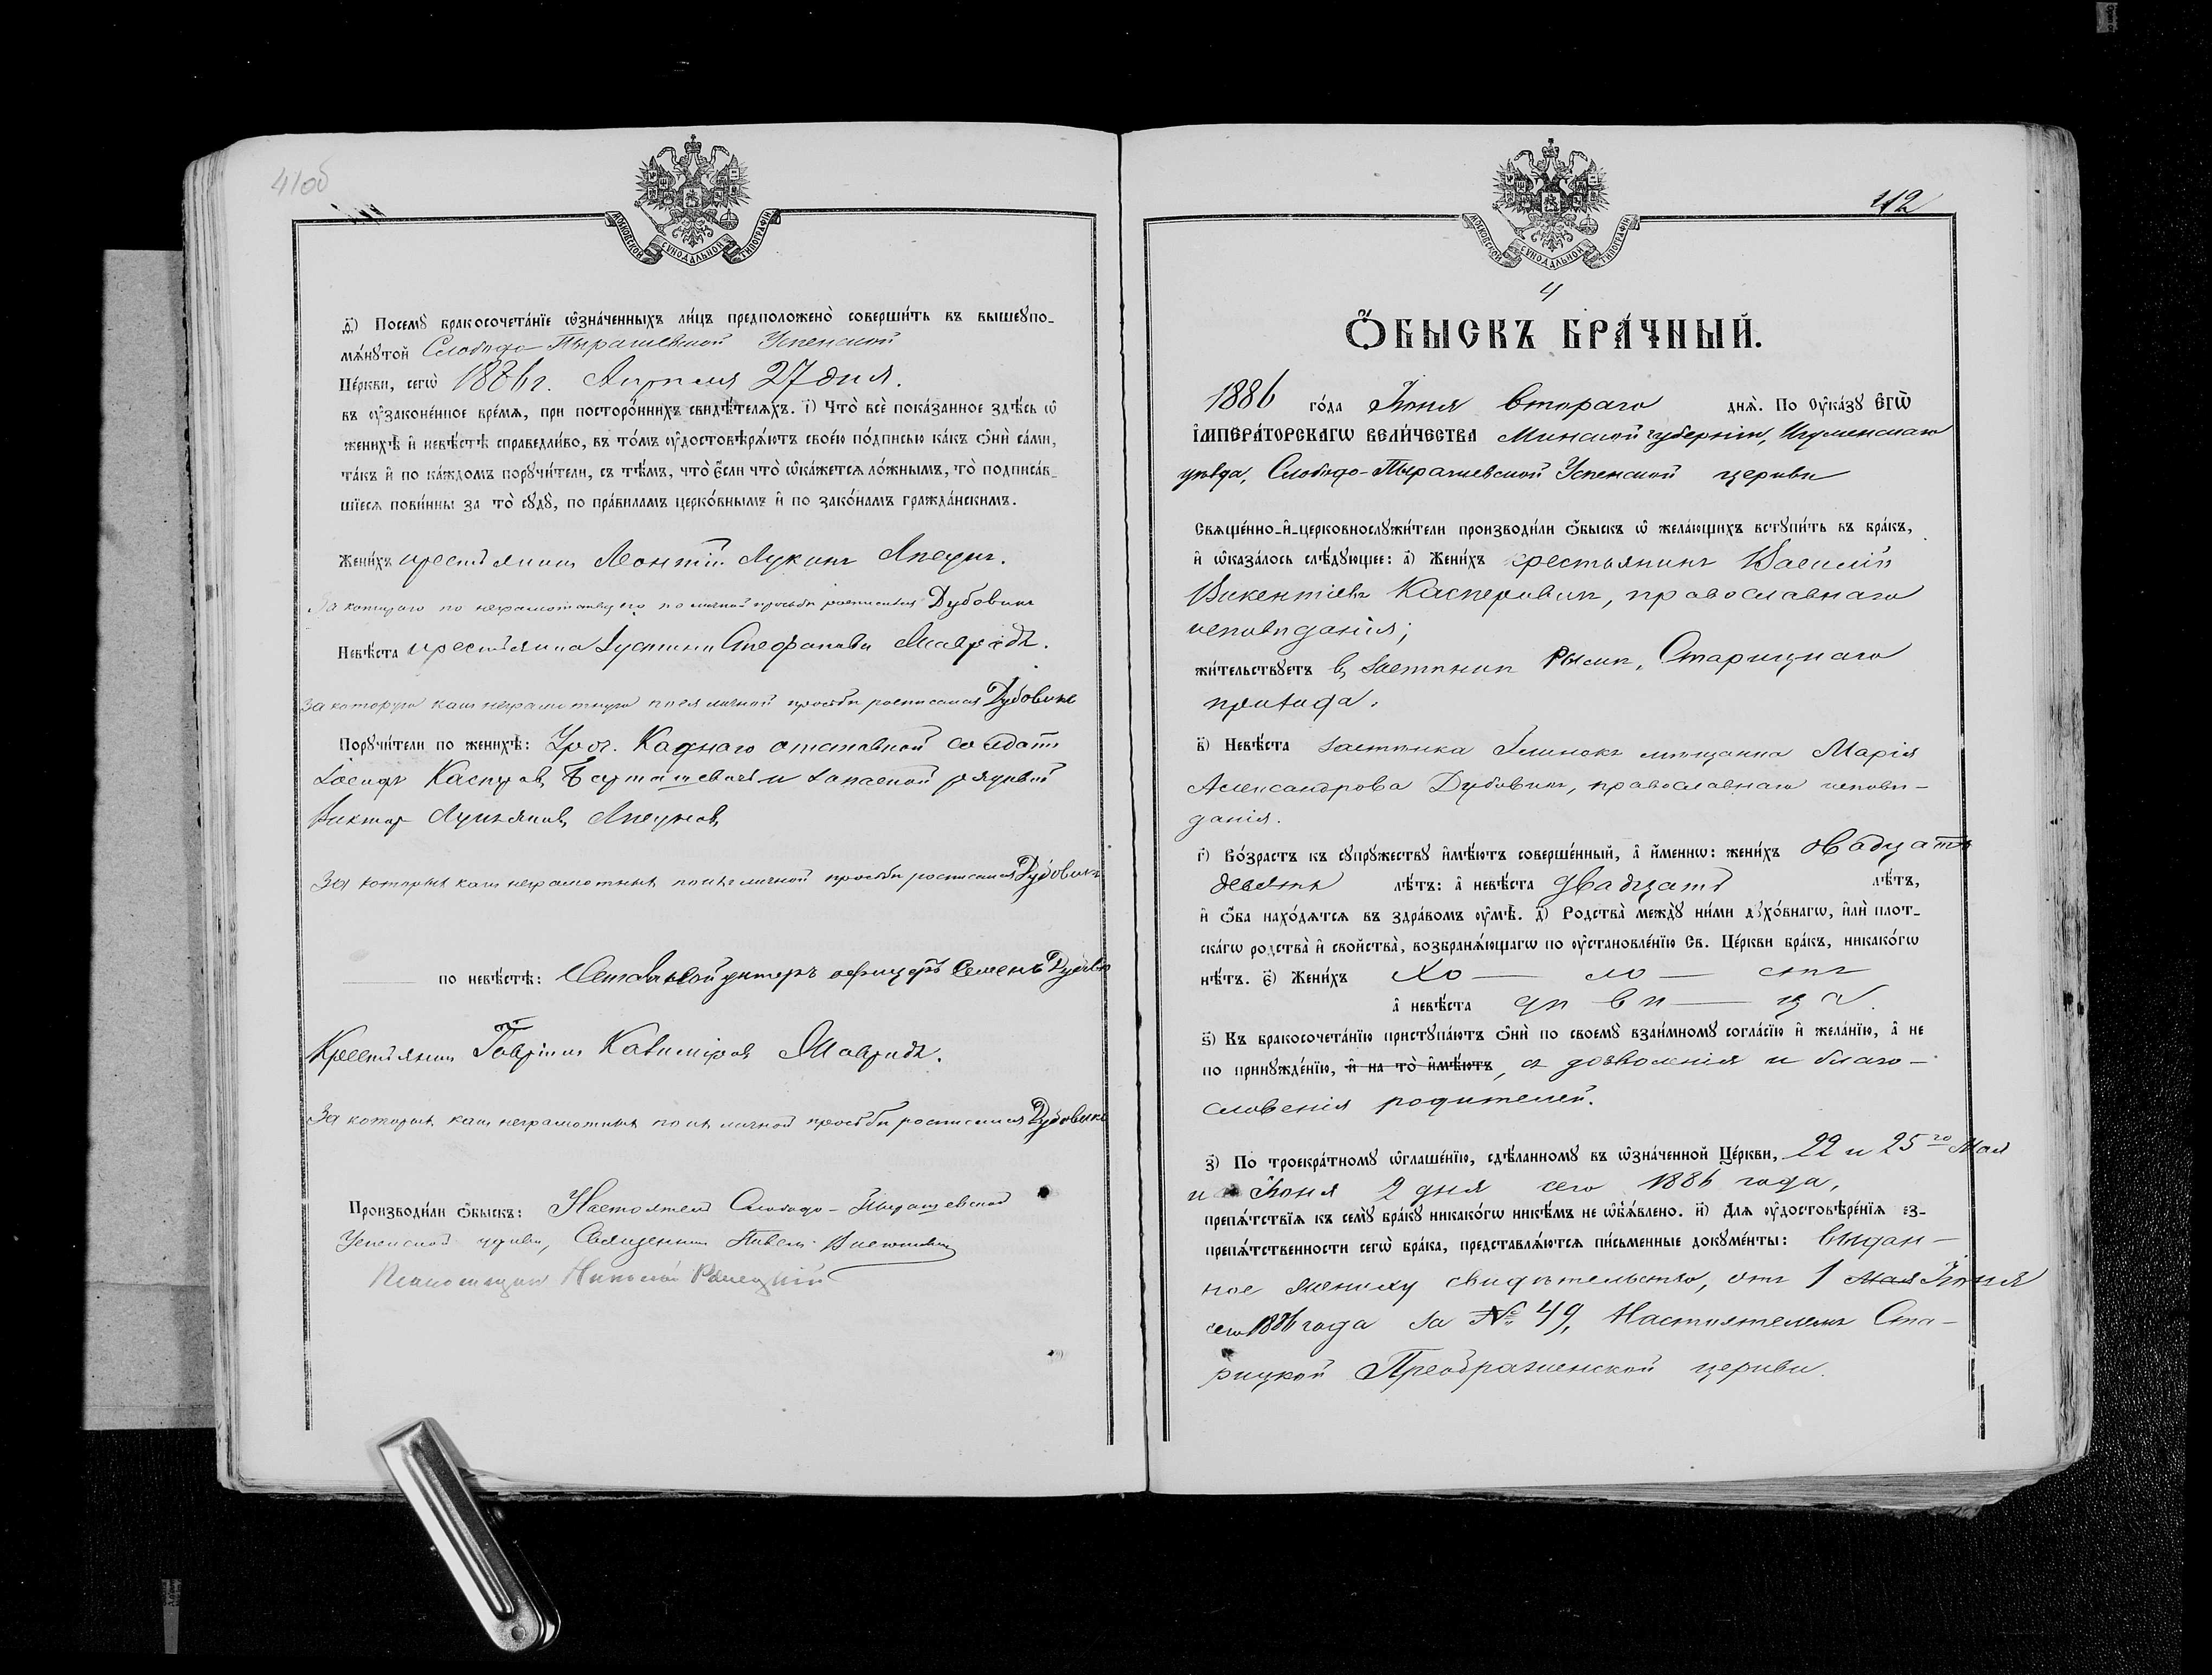 41об
МОСКОВСКОЙ СѴНОДАЛЬНОЙ ТИПОГРАФІИ
д҃) Посемꙋ бракосочета́нїе ѡ҆зна́ченныхъ ли́цъ предположено̀ соверши́ть въ вышеꙋпо-
мѧ́нꙋтой Слободо-Пырашевской Успенской
Це́ркви, сегѡ̀ 1886 г. Апрѣля 27 дня.
въ ᲂу҆законе́нное вре́мѧ, при посторо́ннихъ свидѣ́телѧхъ. і҃) Что̀ всѐ пока́занное здѣ́сь ѡ҆
женихѣ̀ и҆ невѣ́стѣ справедли́во, въ то́мъ ᲂу҆достовѣрѧ́ютъ свое́ю по́дписью ка́къ ѻ҆нѝ са́ми,
та́къ и҆ по ка́ждомъ порꙋчи́тели, съ тѣ́мъ, что̀ є҆́сли что̀ ѡ҆ка́жетсѧ ло́жнымъ, то̀ подписа́в-
шїесѧ пови́нны за то̀ сꙋдꙋ̀, по пра́виламъ церко́внымъ и҆ по зако́намъ гражда́нскимъ.
Жени́хъ крестьянинъ Леонтій Лукинъ Апецін.
За котораго по неграмотству его по личной просьбѣ росписался Дубовикъ
Невѣ́ста крестьянка Іустина Стефанова Мавридъ.
За которую какъ неграмотную по ея личной просьбѣ росписался Дубовикъ
Порꙋчи́тели по женихѣ̀: Уроч. Каднаго отставной солдатъ
Іосифъ Каспровъ и запасной рядовой
Викторъ Лукьяновъ
За которыхъ какъ неграмотныхъ по ихъ личной просьбѣ росписался Дубовикъ
по невѣ́стѣ: Отставной унтеръ офицеръ Семенъ Дубовик
Крестьянинъ Гавріилъ Казиміровъ Мавридъ.
За которыхъ какъ неграмотныхъ по ихъ личной просьбѣ росписался Дубовикъ
Производи́ли ѻ҆́быскъ: Настоятель Слободо-Пырашевской
Успенской церкви, Священникъ Павелъ
Псаломщикъ Николай
42
МОСКОВСКОЙ СѴНОДАЛЬНОЙ ТИПОГРАФІИ
4
Ѻ҆́БЫСКЪ БРА́ЧНЫЙ.
1886 го́да Іюня втораго днѧ̀. По ᲂу҆ка́зꙋ Є҆гѡ̀
І҆мпера́торскагѡ Вели́чества Минской губерніи, Игуменскаго
уѣзда, Слободо-Пырашевской Успенской церкви
Свѧще́нно-и҆-церковнослꙋжи́тели производи́ли ѻ҆́быскъ ѡ҆ жела́ющихъ встꙋпи́ть въ бра́къ,
и҆ ѡ҆каза́лось слѣ́дꙋющее: а҃) Жени́хъ крестьянинъ Василій
Викентіевъ Касперовичъ, православнаго
исповѣданія;
жи́тельствꙋетъ въ застѣнкѣ Рысин, Старицкаго
прихода.
в҃) Невѣ́ста застѣнка мѣщанка Марія
Александрова Дубовикъ, православнаго исповѣ-
данія.
г҃) Во́зрастъ къ сꙋпрꙋ́жествꙋ и҆мѣ́ютъ соверше́нный, а҆ и҆́меннѡ: жени́хъ двадцать
девять лѣ́тъ: а҆ невѣ́ста двадцать лѣ́тъ,
и҆ ѻ҆́ба нахо́дѧтсѧ въ здра́вомъ ᲂу҆мѣ̀. д҃) Родства̀ междꙋ̀ ни́ми дꙋхо́внагѡ, и҆лѝ плот-
ска́гѡ родства̀ и҆ свойства̀, возбранѧ́ющагѡ по ᲂу҆становле́нїю Св. Це́ркви бра́къ, никако́гѡ
нѣ́тъ. є҃) Жени́хъ хо — ло — стъ
а҆ невѣ́ста дѣ ви — ца.
ѕ҃) Къ бракосочета́нїю пристꙋпа́ютъ ѻ҆нѝ по своемꙋ̀ взаи́мномꙋ согла́сїю и҆ жела́нїю, а҆ не
по принꙋжде́нїю, и҆ на то̀ и҆мѣ́ютъ, съ дозволенія и благо-
словенія родителей.
з҃) По троекра́тномꙋ ѡ҆глаше́нїю, сдѣ́ланномꙋ въ ѡ҆зна́ченной Це́ркви, 22 и 25го Мая
и Іюня 2 дня сего 1886 года,
препѧ́тствїѧ къ семꙋ̀ бра́кꙋ никако́гѡ никѣ́мъ не ѡ҆б̾ѧ́влено. и҃) Длѧ ᲂу҆достовѣре́нїѧ без-
препѧ́тственности сегѡ̀ бра́ка, представлѧ́ютсѧ пи́сьменные докꙋме́нты: выдан-
ное жениху свидѣтельство, отъ 1 Мая Іюня
сего 1886 года за № 49, Настоятелемъ Ста-
рицкой Преображенской церкви.